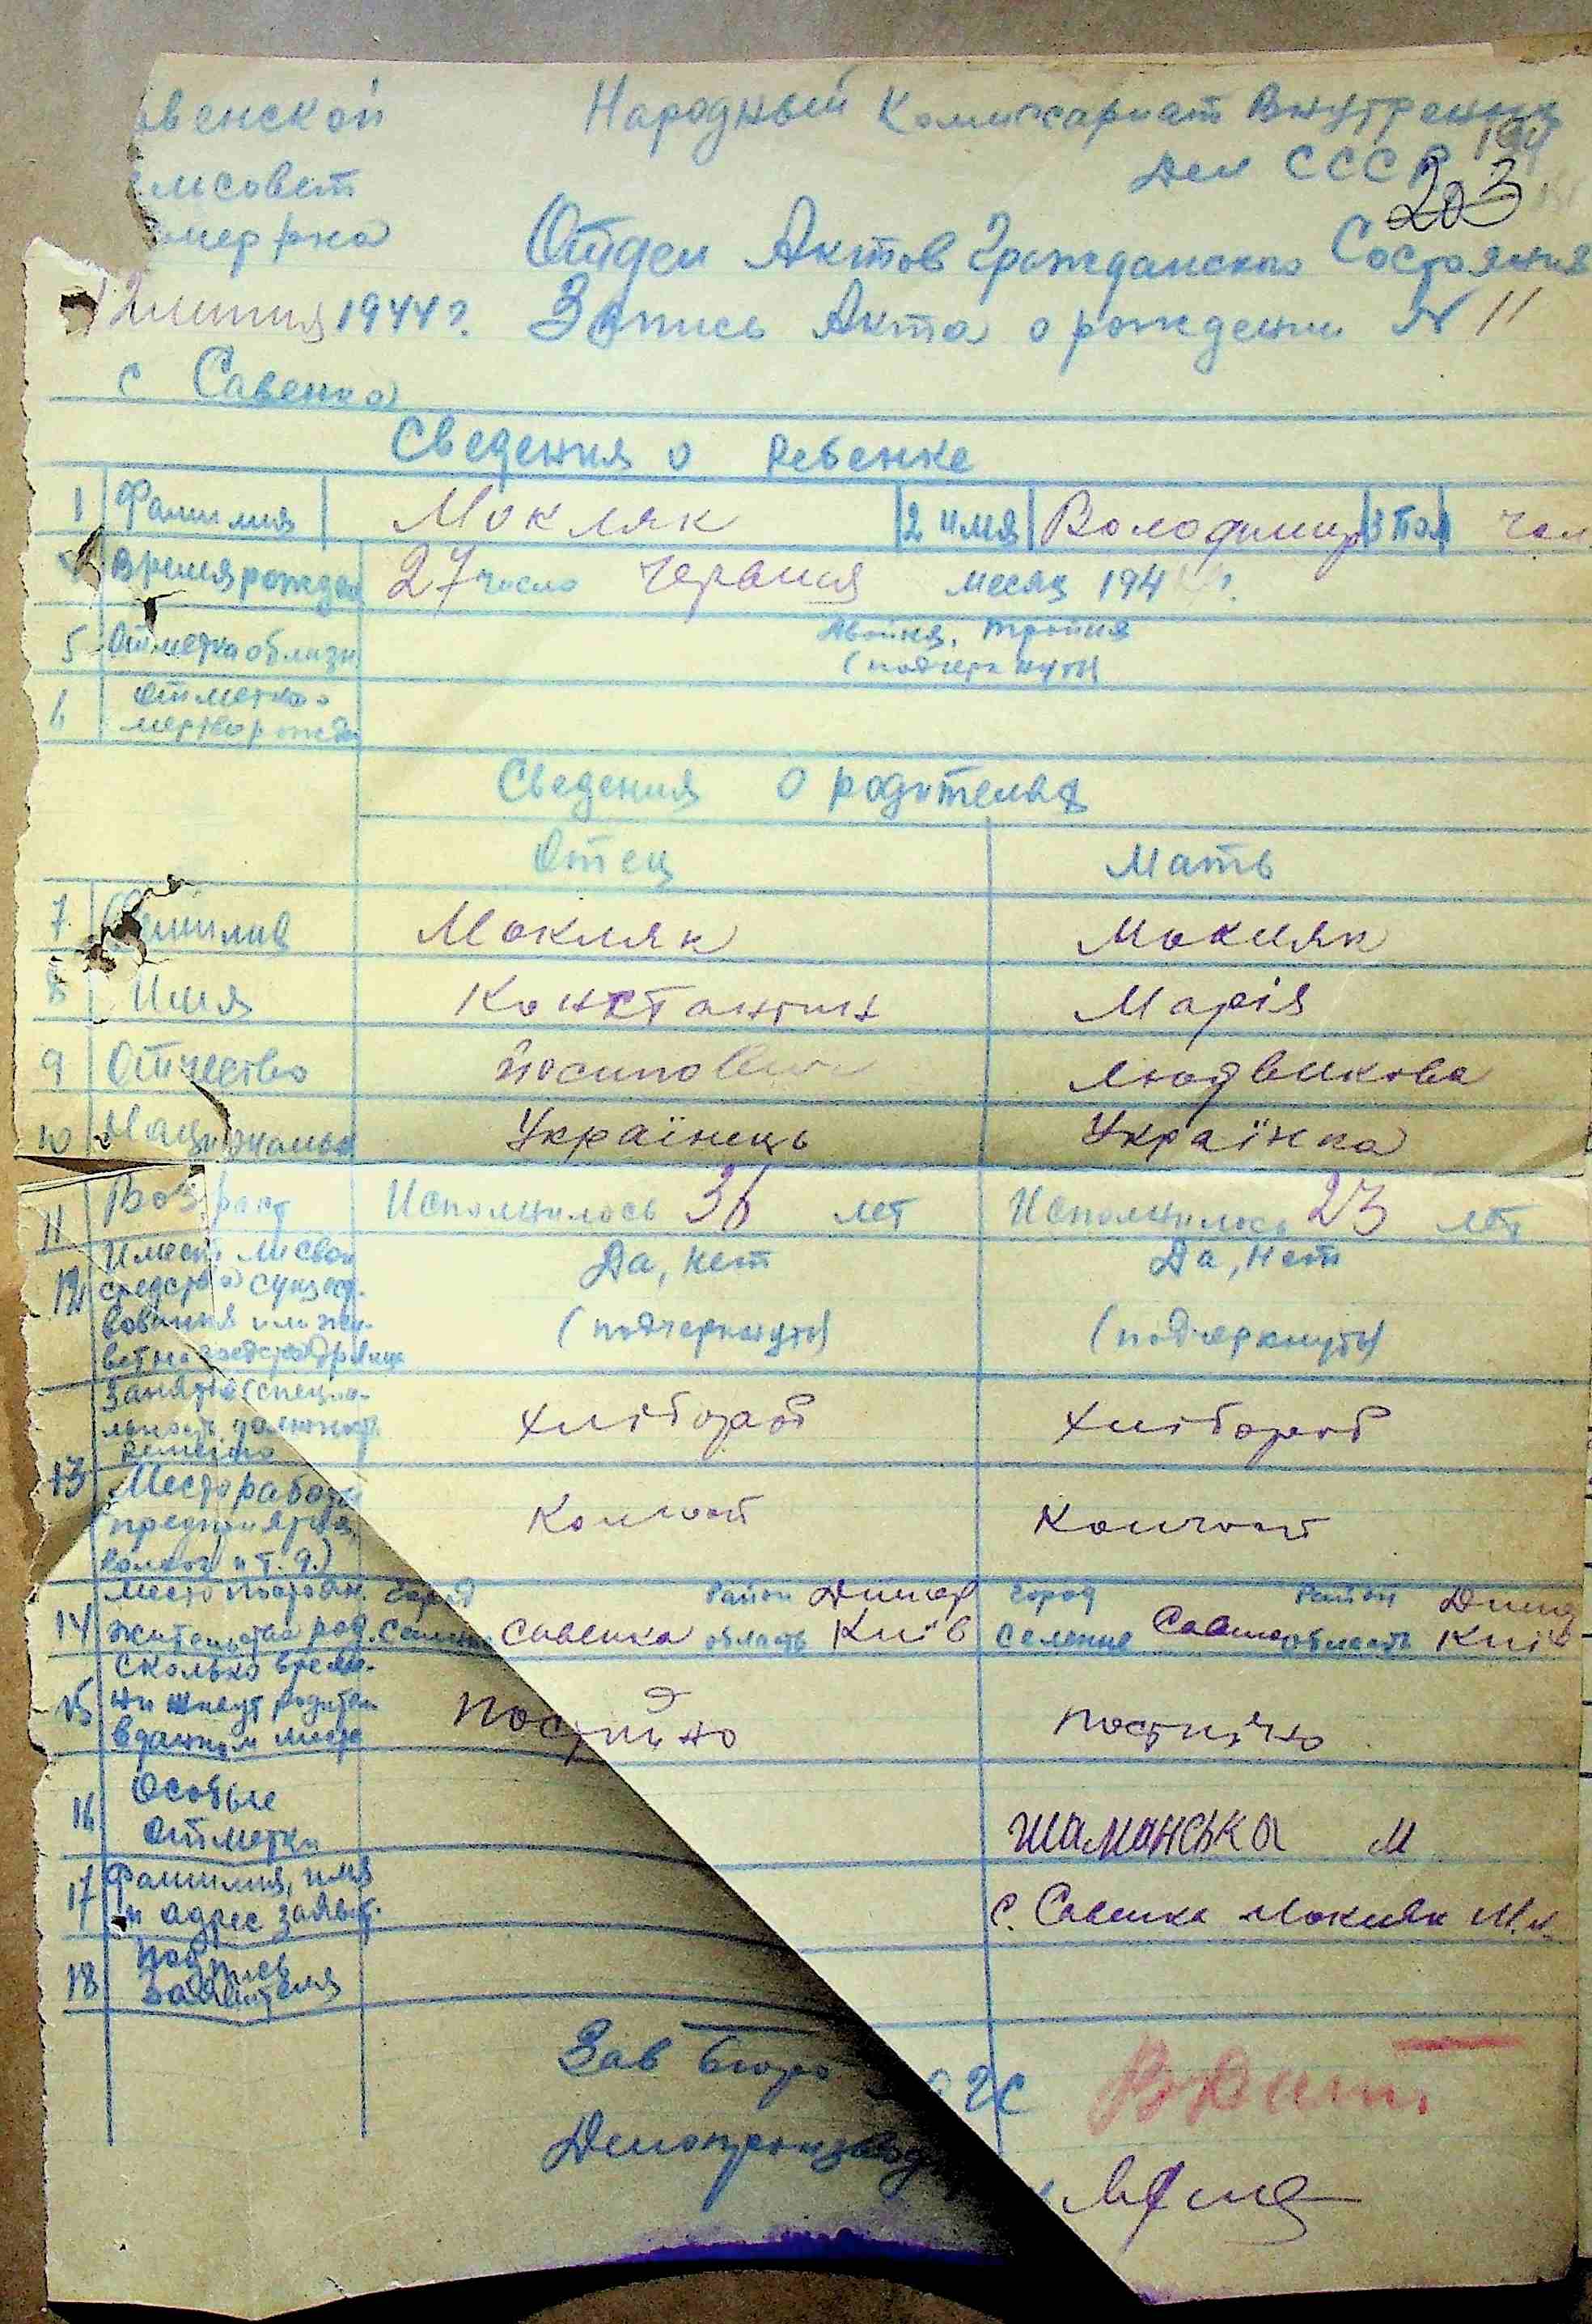 венской Народный Комиссариат Внутренних
Дел СССР
203
льсовет
Отдел Актов Гражданского Состояния
12 липня 1944 г. Запись Акта о рождении № 11
с Савенка
Сведения о Ребенке
1 Фамилия Мокляк 2 имя Володимир 3 Пол чол
Время рожден 27 число червня месяц 194
5 Отметка о близн двойня, тройня
(подчеркнуть)
6 отметка о
мертворожд
Сведения о родителях
Отец Мать
7 Фамилия Мокляк Мокляк
8 Имя Константин Марія
9 Отчество Йосипович Людвикова
10 Национальн Українець Українка
11 Возраст Исполнилось 36 лет Исполнилось 23 лет
12 Имеет ли свои Да, нет Да, Нет
средства сущест-
вования или жи- (подчеркнуть) (подчеркнуть)
вет на
Занятие (специа-
льность, должность хлібороб хлібороб
ремесло
13 Место работы
предприятия, Колгосп Колгосп
колхоз и т. д.)
Место постоян. Город Район Димер Город Район Димер
14 жительства род. Селение Савенка область Київ Селение Савенка область Київ
сколько време-
15 ни живут родители постійно постійно
в данном месте
16 Особые
отметки Шаманська М
17 Фамилия, имя
и адрес заявит. с. Савенка Мокляк М.
18 Подпись
Заявителя
Зав Бюро ЗАГС
Делопроизвод